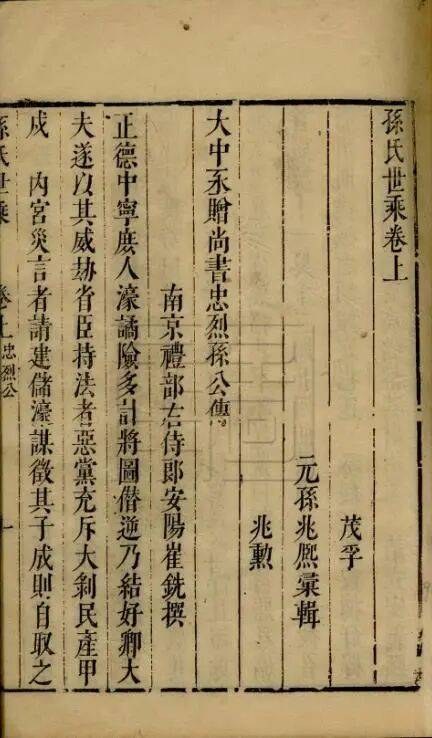 孫氏世乘卷上
茂孚
元孫兆熙彙輯
兆勲
大中丞贈尚書忠烈孫公傳
南京禮部右侍郎安陽崔銑撰
正德中寧庶人濠譎險多計將圖僭逆乃結好卿大
夫遂以其威劫省臣持法者惡黨充斥大剝民產甲
戍　內宮災言者請建儲濠謀徵其子成則自取之
孫氏世乘　卷上忠烈公　一